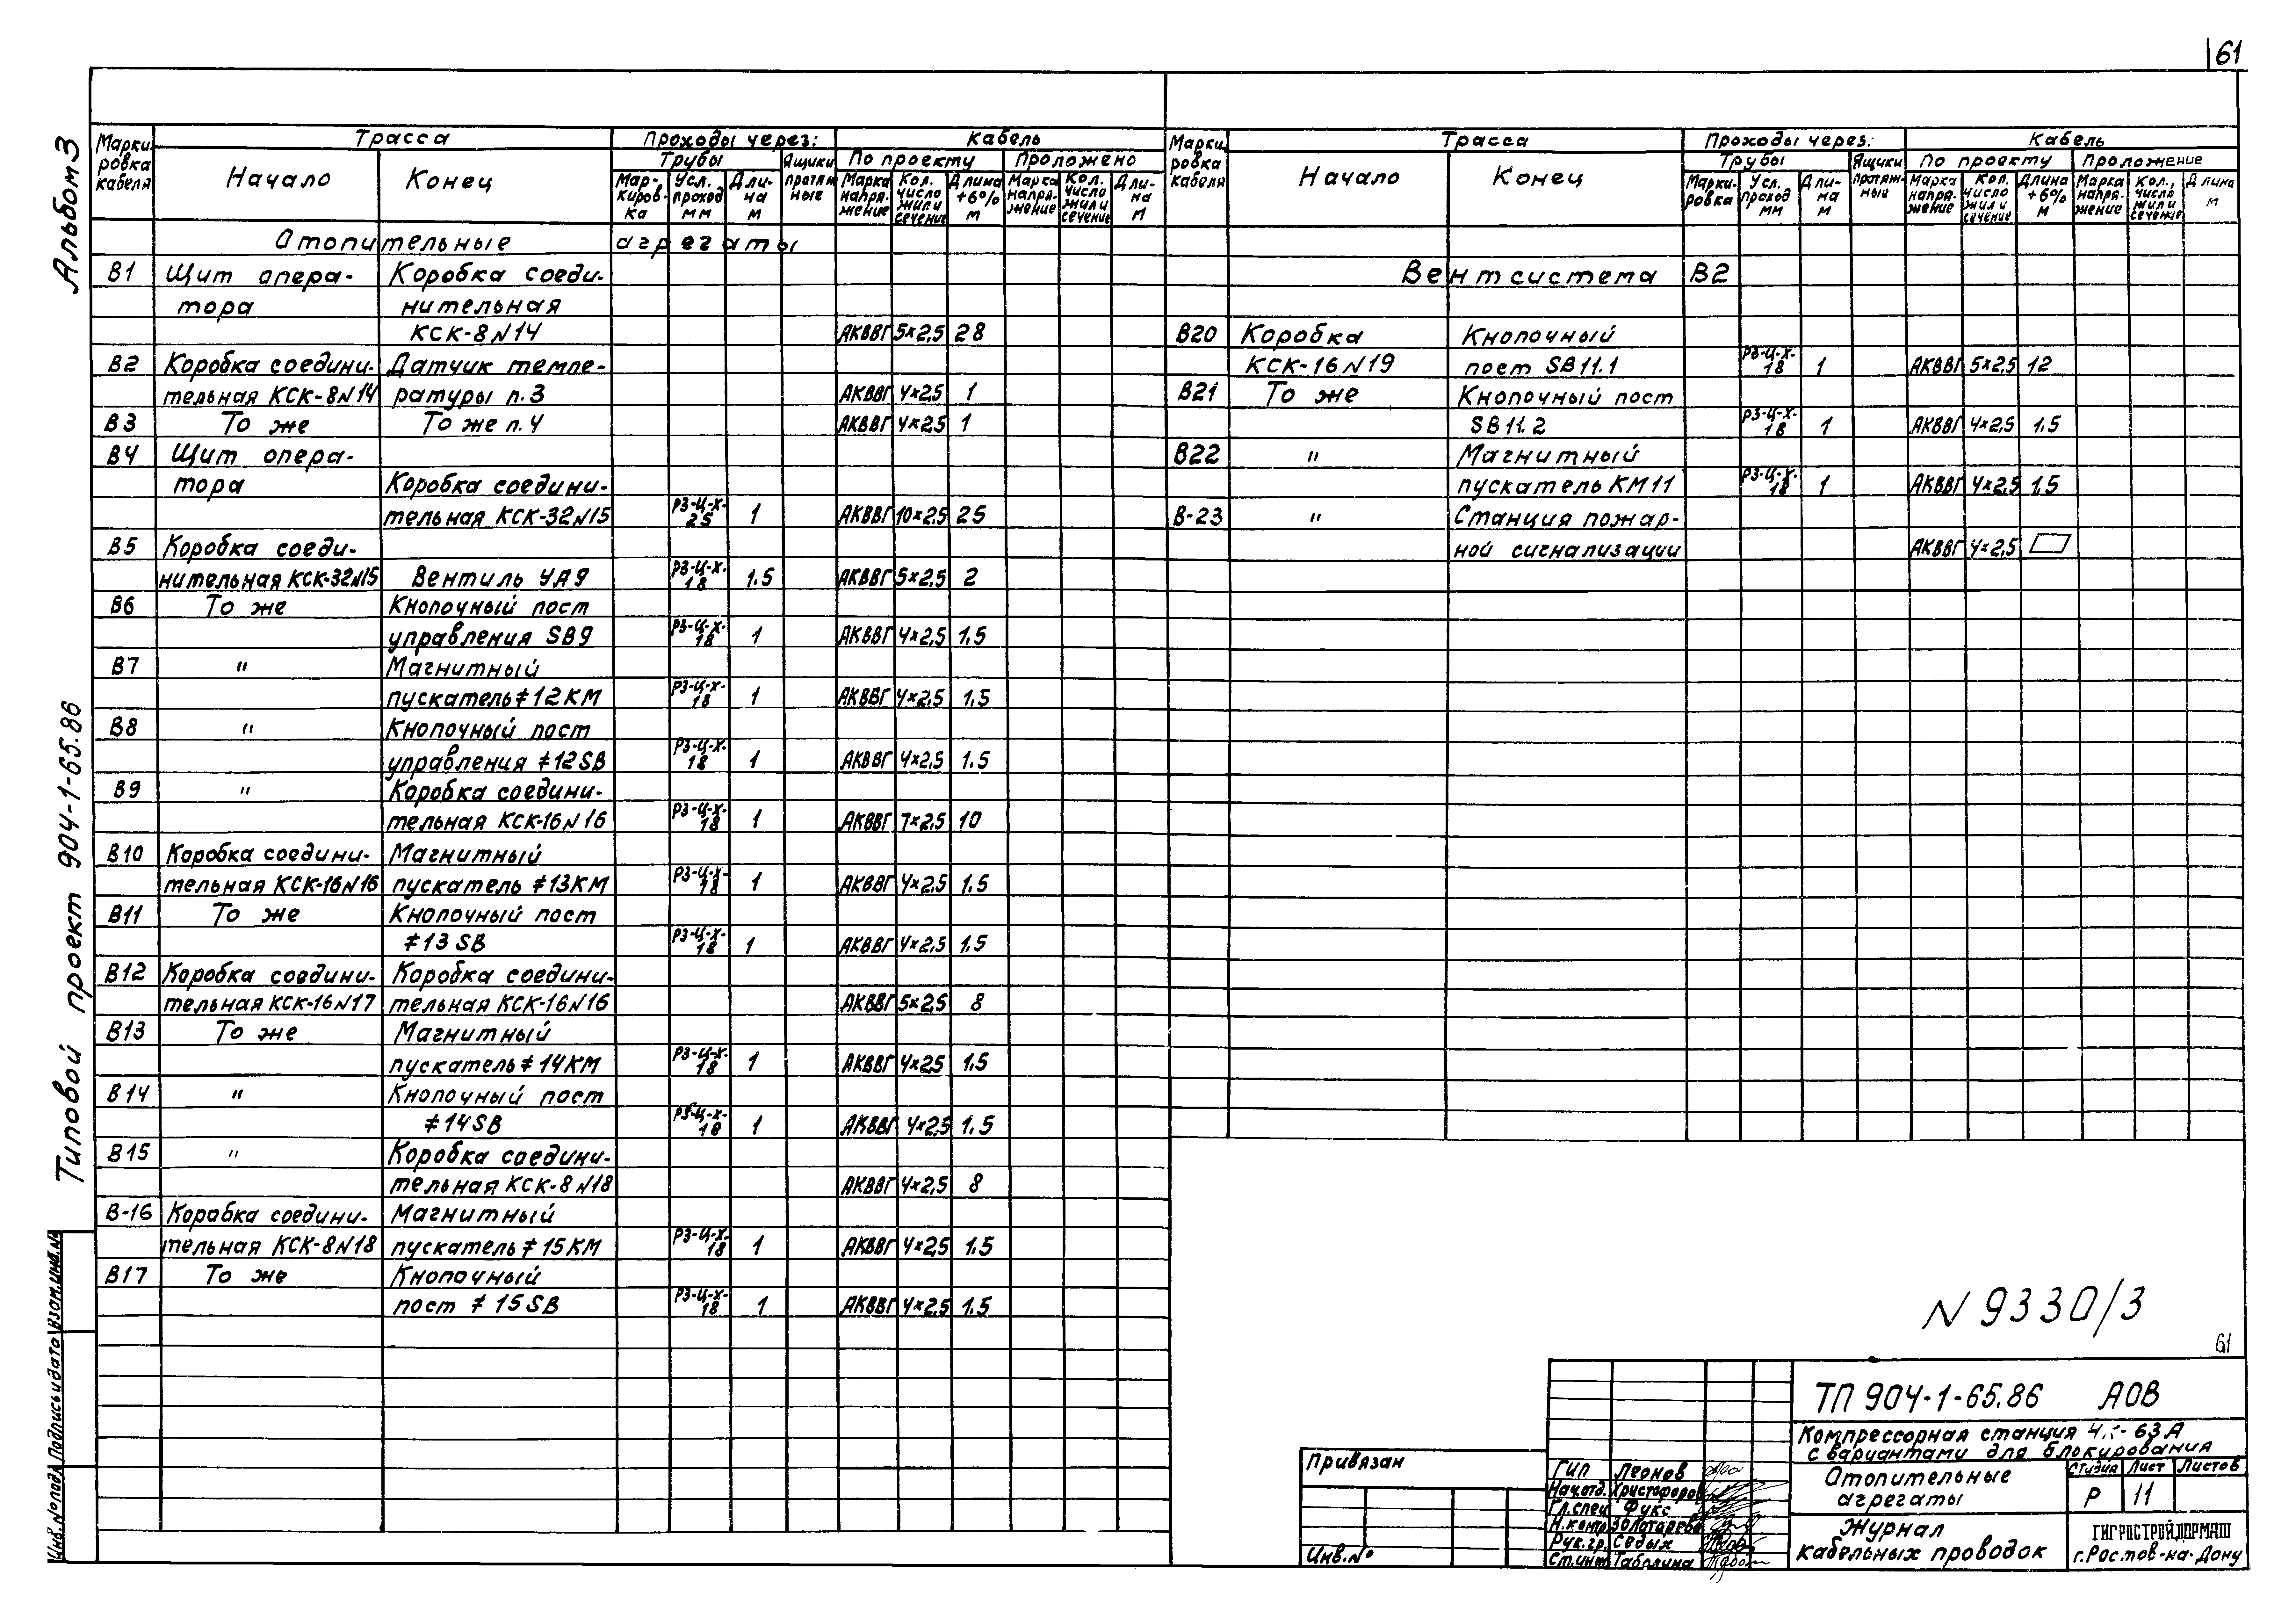 61
Альбом 3
Типовой проект 904-1-65.86
Инв. № подл. Подпись и дата Взам. инв. №
Марки- ровка кабеля | Трасса | Проходы через: | Кабель
Начало | Конец | Трубы | Ящики протяж- ные | По проекту | Проложено
Мар- киров- ка | Усл. проход мм | Дли- на м | Марка напря- жение | Кол. число жил и сечение | Длина +6% м | Марка напря- жение | Кол. число жил и сечение | Дли- на м
Отопительные агрегаты
В1 Щит опера- Коробка соеди-
тора нительная
КСК-8 N14 АКВВГ 5×2,5 28
В2 Коробка соедини- Датчик темпе-
тельная КСК-8N14 ратуры п.3 АКВВГ 4×2,5 1
В3 То же То же п.4 АКВВГ 4×2,5 1
В4 Щит опера-
тора Коробка соедини-
тельная КСК-32N15 РЗ-Ц-Х-25 1 АКВВГ 10×2,5 25
В5 Коробка соеди-
нительная КСК-32N15 Вентиль УА9 РЗ-Ц-Х-18 1.5 АКВВГ 5×2,5 2
В6 То же Кнопочный пост
управления SB9 РЗ-Ц-Х-18 1 АКВВГ 4×2,5 1.5
В7 " Магнитный
пускатель ≠12КМ РЗ-Ц-Х-18 1 АКВВГ 4×2,5 1,5
В8 " Кнопочный пост
управления ≠12SB РЗ-Ц-Х-18 1 АКВВГ 4×2,5 1.5
В9 " Коробка соедини-
тельная КСК-16N16 РЗ-Ц-Х-18 1 АКВВГ 7×2,5 10
В10 Коробка соедини- Магнитный
тельная КСК-16N16 пускатель ≠13КМ РЗ-Ц-Х-18 1 АКВВГ 4×2,5 1.5
В11 То же Кнопочный пост
≠13SB РЗ-Ц-Х-18 1 АКВВГ 4×2,5 1.5
В12 Коробка соедини- Коробка соедини-
тельная КСК-16N17 тельная КСК-16N16 АКВВГ 5×2,5 8
В13 То же Магнитный
пускатель ≠14КМ РЗ-Ц-Х-18 1 АКВВГ 4×2,5 1.5
В14 " Кнопочный пост
≠14SB РЗ-Ц-Х-18 1 АКВВГ 4×2,5 1.5
В15 " Коробка соедини-
тельная КСК-8N18 АКВВГ 4×2,5 8
В-16 Коробка соедини- Магнитный
тельная КСК-8N18 пускатель ≠15КМ РЗ-Ц-Х-18 1 АКВВГ 4×2,5 1.5
В17 То же Кнопочный
пост ≠15SB РЗ-Ц-Х-18 1 АКВВГ 4×2,5 1.5
Марки- ровка кабеля | Трасса | Проходы через: | Кабель
Начало | Конец | Трубы | Ящики протяж- ные | По проекту | Проложение
Марки- ровка | Усл. проход мм | Дли- на м | Марка напря- жение | Кол. число жил и сечение | Длина +6% м | Марка напря- жение | Кол., число жил и сечение | Длина м
Вентсистема В2
В20 Коробка Кнопочный
КСК-16N19 пост SB11.1 РЗ-Ц-Х-18 1 АКВВГ 5×2,5 12
В21 То же Кнопочный пост
SB11.2 РЗ-Ц-Х-18 1 АКВВГ 4×2,5 1.5
В22 " Магнитный
пускатель КМ11 РЗ-Ц-Х-18 1 АКВВГ 4×2,5 1,5
В-23 " Станция пожар-
ной сигнализации АКВВГ 4×2,5
N 9330/3
61
ТП 904-1-65.86 АОВ
Компрессорная станция 63А
с вариантами для блокирования
Отопительные агрегаты
Стадия Лист Листов
Р 11
Журнал
кабельных проводок
ГИПРОСТРОЙДОРМАШ
г. Ростов-на-Дону
Привязан
Инв. №
ГИП Леонов
Нач.отд. Христофоров
Гл.спец Фукс
Н.контр. Золотарева
Рук.гр. Седых
Ст.инж Таболина